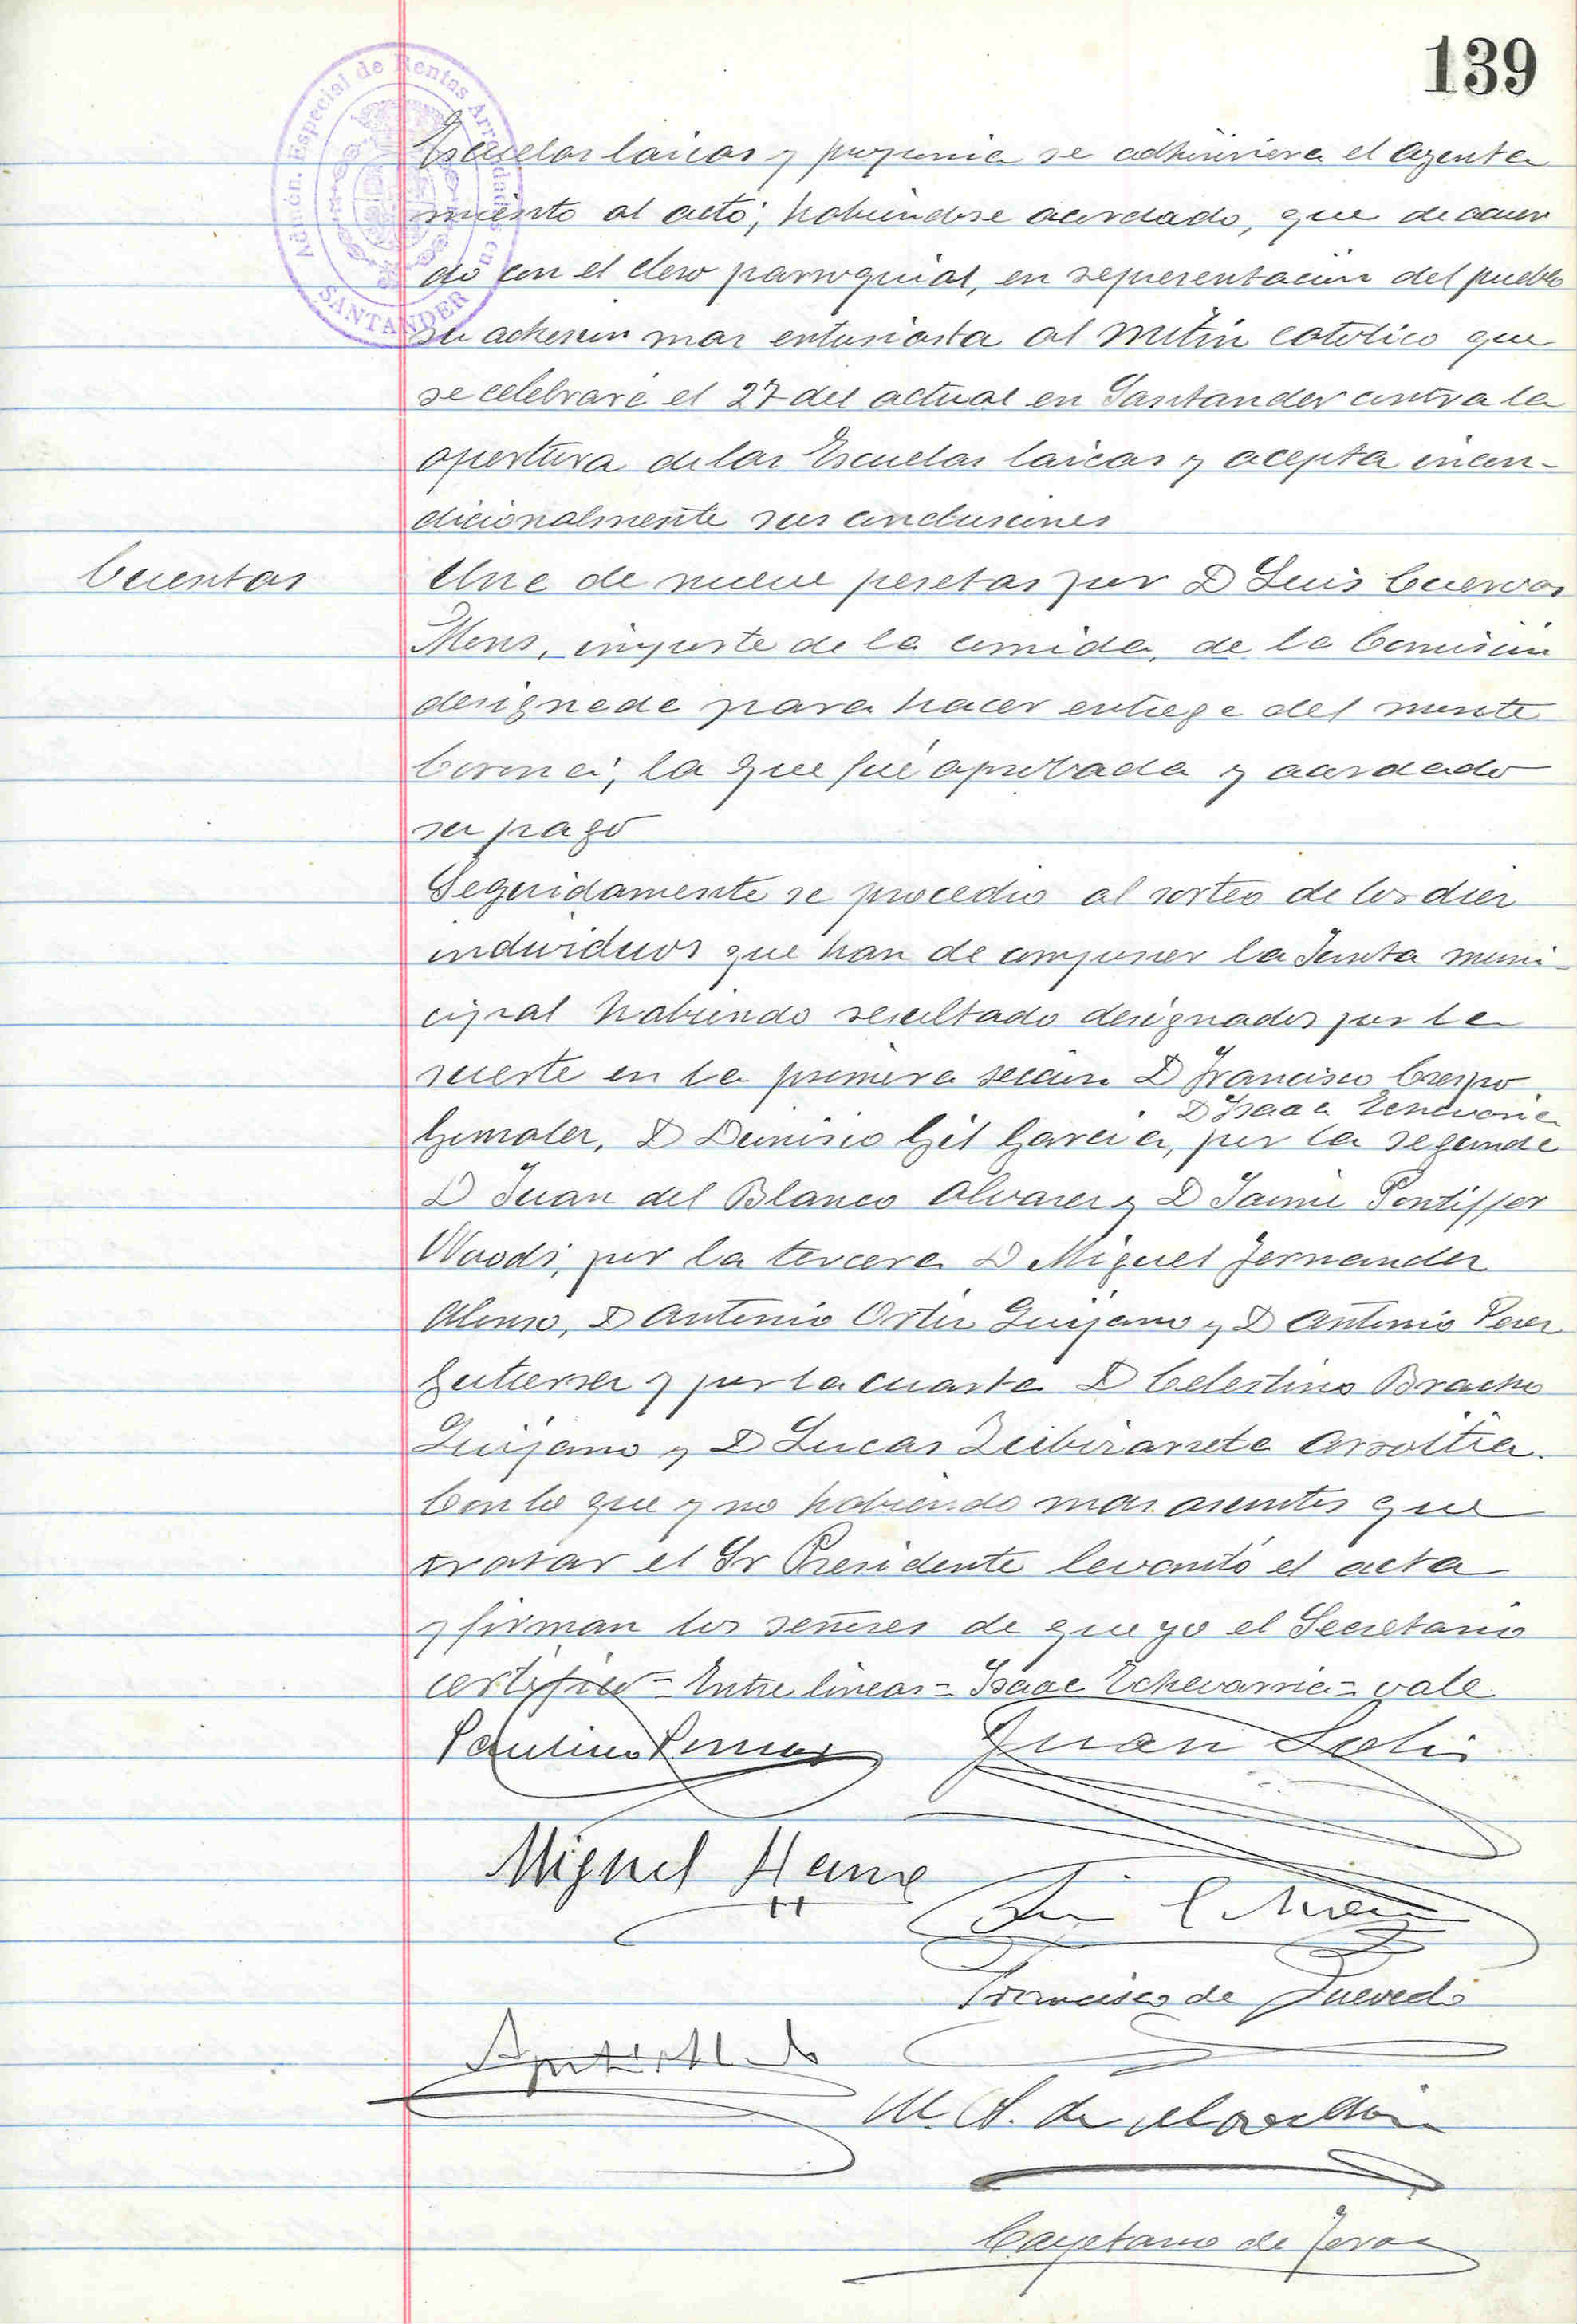 139
Admón. Especial de Rentas Arrendadas en
SANTANDER
Escuelas laicas y proponia se adhiriera el Ayunta
miento al acto; habiendose acordado, que de acuer
do con el clero parroquial, en representacion del pueblo
su adhesion mas entusiasta al mitin catolico que
se celebrará el 27 del actual en Santander contra la
apertura de las Escuelas laicas y acepta incon-
dicionalmente sus conclusiones
Cuentas
Una de nueve pesetas por D Luis Cuervas
Mons, importe de la comida, de la Comision
designada para hacer entrega del monte
Corona; la que fué aprobada y acordado
su pago
Seguidamente se procedio al sorteo de los diez
individuos que han de componer la Junta muni
cipal habiendo resultado designados por la
suerte en la primera seccion D Francisco Crespo
D Isaac Echevarria
Gonzalez, D Dionisio Gil Garcia, por la segunda
D Juan del Blanco Alvarez y D Jaime Pontifper
Woods, por la tercera D Miguel Fernandez
Alonso, D Antonio Ortiz Quijano y D Antonio Perez
Gutierrez y por la cuarta D Celestino Bracho
Quijano y D Lucas Zubizarreta Arsoitia.
Con lo que y no habiendo mas asuntos que
tratar el Sr Presidente levantó el acta
y firman los señores de que yo el Secretario
certifico = Entre lineas = Isaac Echevarria = vale
Juan Solis
Miguel
Francisco de Quevedo
M. A. de
Cayetano de